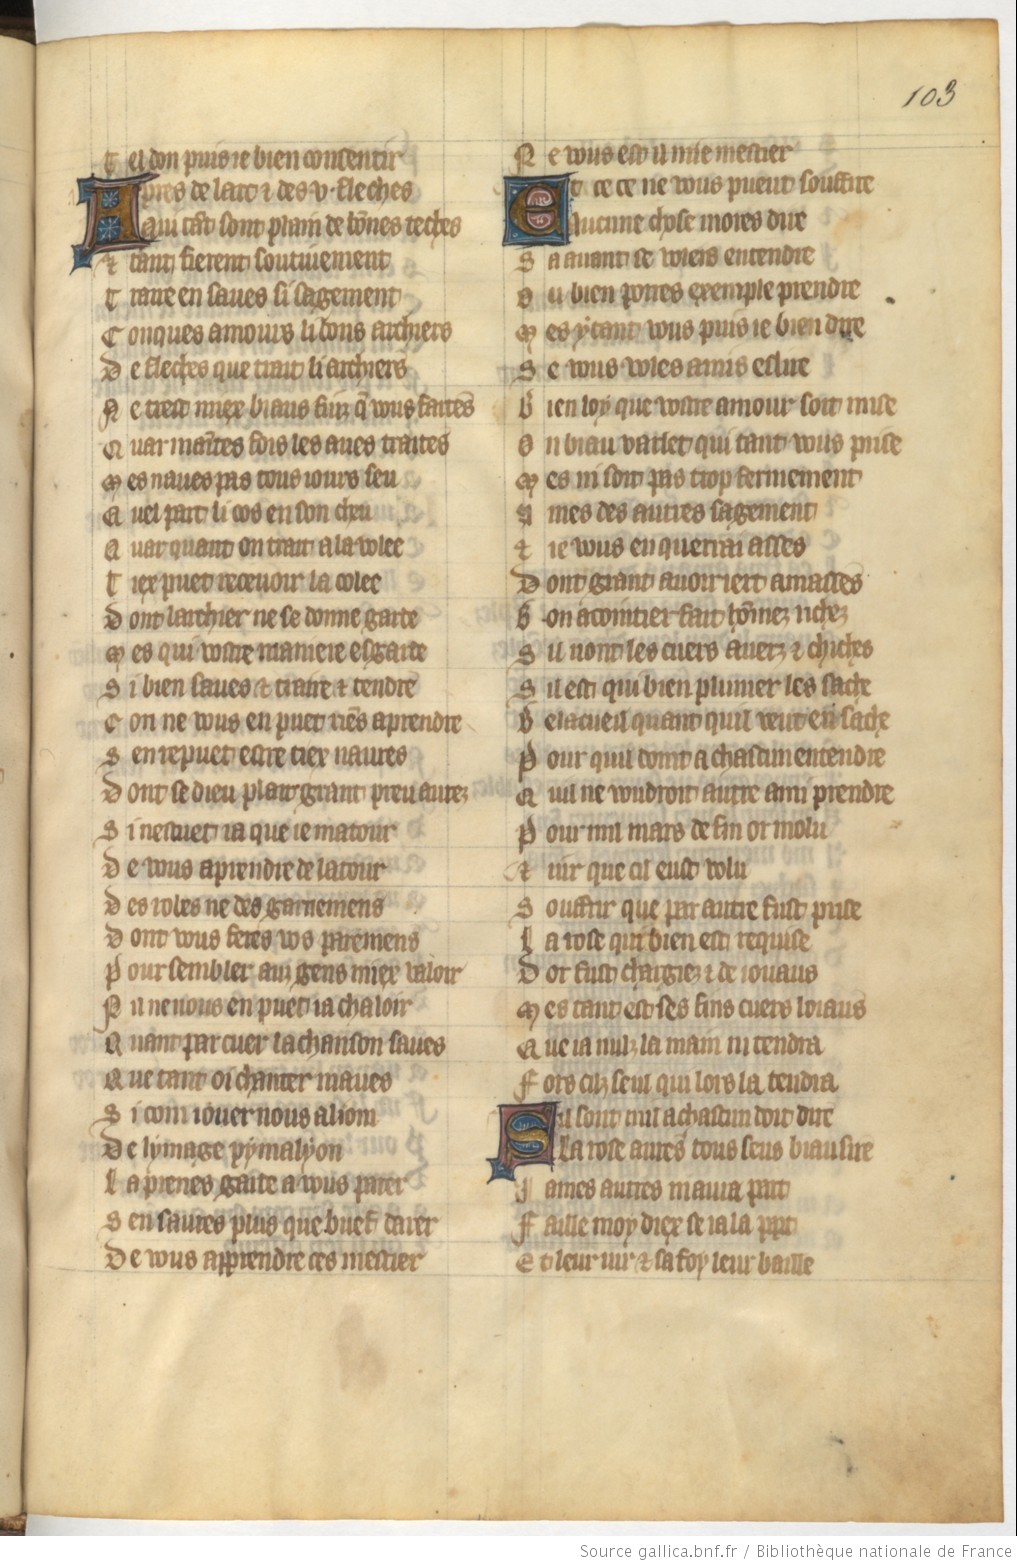 103
T el don puis ie bien consentir
A pres de larc ⁊ des v. fleches
Q ui tāt sont plain de bōnes teches
⁊ tant fierent soutiuement
T raire en saues si sagement
C onques amours li bons archiers
D e fleches que trait li archiers
N e trest miex biaus fiuz q̄ vous faites
Q uar maītes fois les aues traites
M es naues pas tous iours seu
Q uel part li cos en son cheu
Q uar quant on trait a la volee
T iex puet receuoir la colee
D ont larchier ne se donne garde
M es qui vostre maniere esgarde
S i bien saues ⁊ traire ⁊ tendre
C on ne vous en puet riēs aprendre
S en repuet estre tiex naures
D ont se dieu plait grant preu aurez
S i nestuet ia que ie matour
D e vous aprendre de latour
D es robes ne des garnemens
D ont vous feres vos paremens
P our sembler aus gens miex valoir
N il ne vous en puet ia chaloir
Q uant par cuer la chanson saues
Q ue tant oi chanter maues
S i com iouer nous aliom
D e lymage pymalyon
L a prenes garde a vous parer
S en saures plus que buef darer
D e vous apprendre ces mestier
N e vous est il mie mestier
E t ce ce ne vous puent souffire
A ucune chose morres dire
S a auant se voles entendre
O u bien porres exemple prendre
M es ytant vous puis ie bien dire
S e vous voles amis eslire
B ien loy que vostre amour soit mise
O u biau vallet qui tant vous prise
M es ni soit pas trop fermement
A mes des autres sagement
⁊ ie vous en querrai asses
D ont grant auoir iert amasses
B on acointier fait hōmez richez
S il nont les cuers auerz ⁊ chiches
S il est qui bien plumer les sache
B elacueil quant quil veut en sache
P our quil doint a chascun entendre
Q uil ne voudroit autre ami prendre
P our mil mars de fin or molu
⁊ iur que cil eust volu
S ouffrir que par autre fust prise
L a rose qui bien est requise
D or fust chargiez ⁊ de ioyaus
M es tant est ses fins cuers loiaus
Q ue ia nulz la main ni tendra
F ors cilz seul qui lors la tendra
S il sont mil a chascun doit dire
L a rose aures tous seus biau sire
I ames autres maura part
F aille moy diex se ia la ppart
E t leur iur ⁊ sa foy leur baille
Source gallica.bnf.fr / Bibliothèque nationale de France